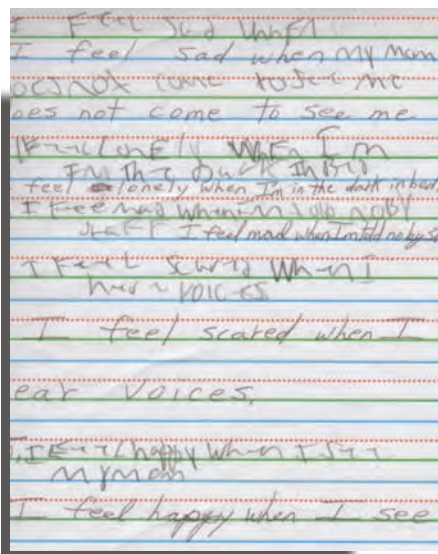 I FEEL Sad
I feel sad when my mom
oes not come to see me
oes not come to see me
FEEL LonEly WhEn I'm
In The Dark In Bed
feel lonely when I'm in the dark in bed
I FEE mad when
STaFF I feel mad when I'm told no by s
I FEEL Scared When I
hear VOICES
I feel scared when I
ear voices.
I FEEL happy When I SEE
my mom
I feel happy when I see